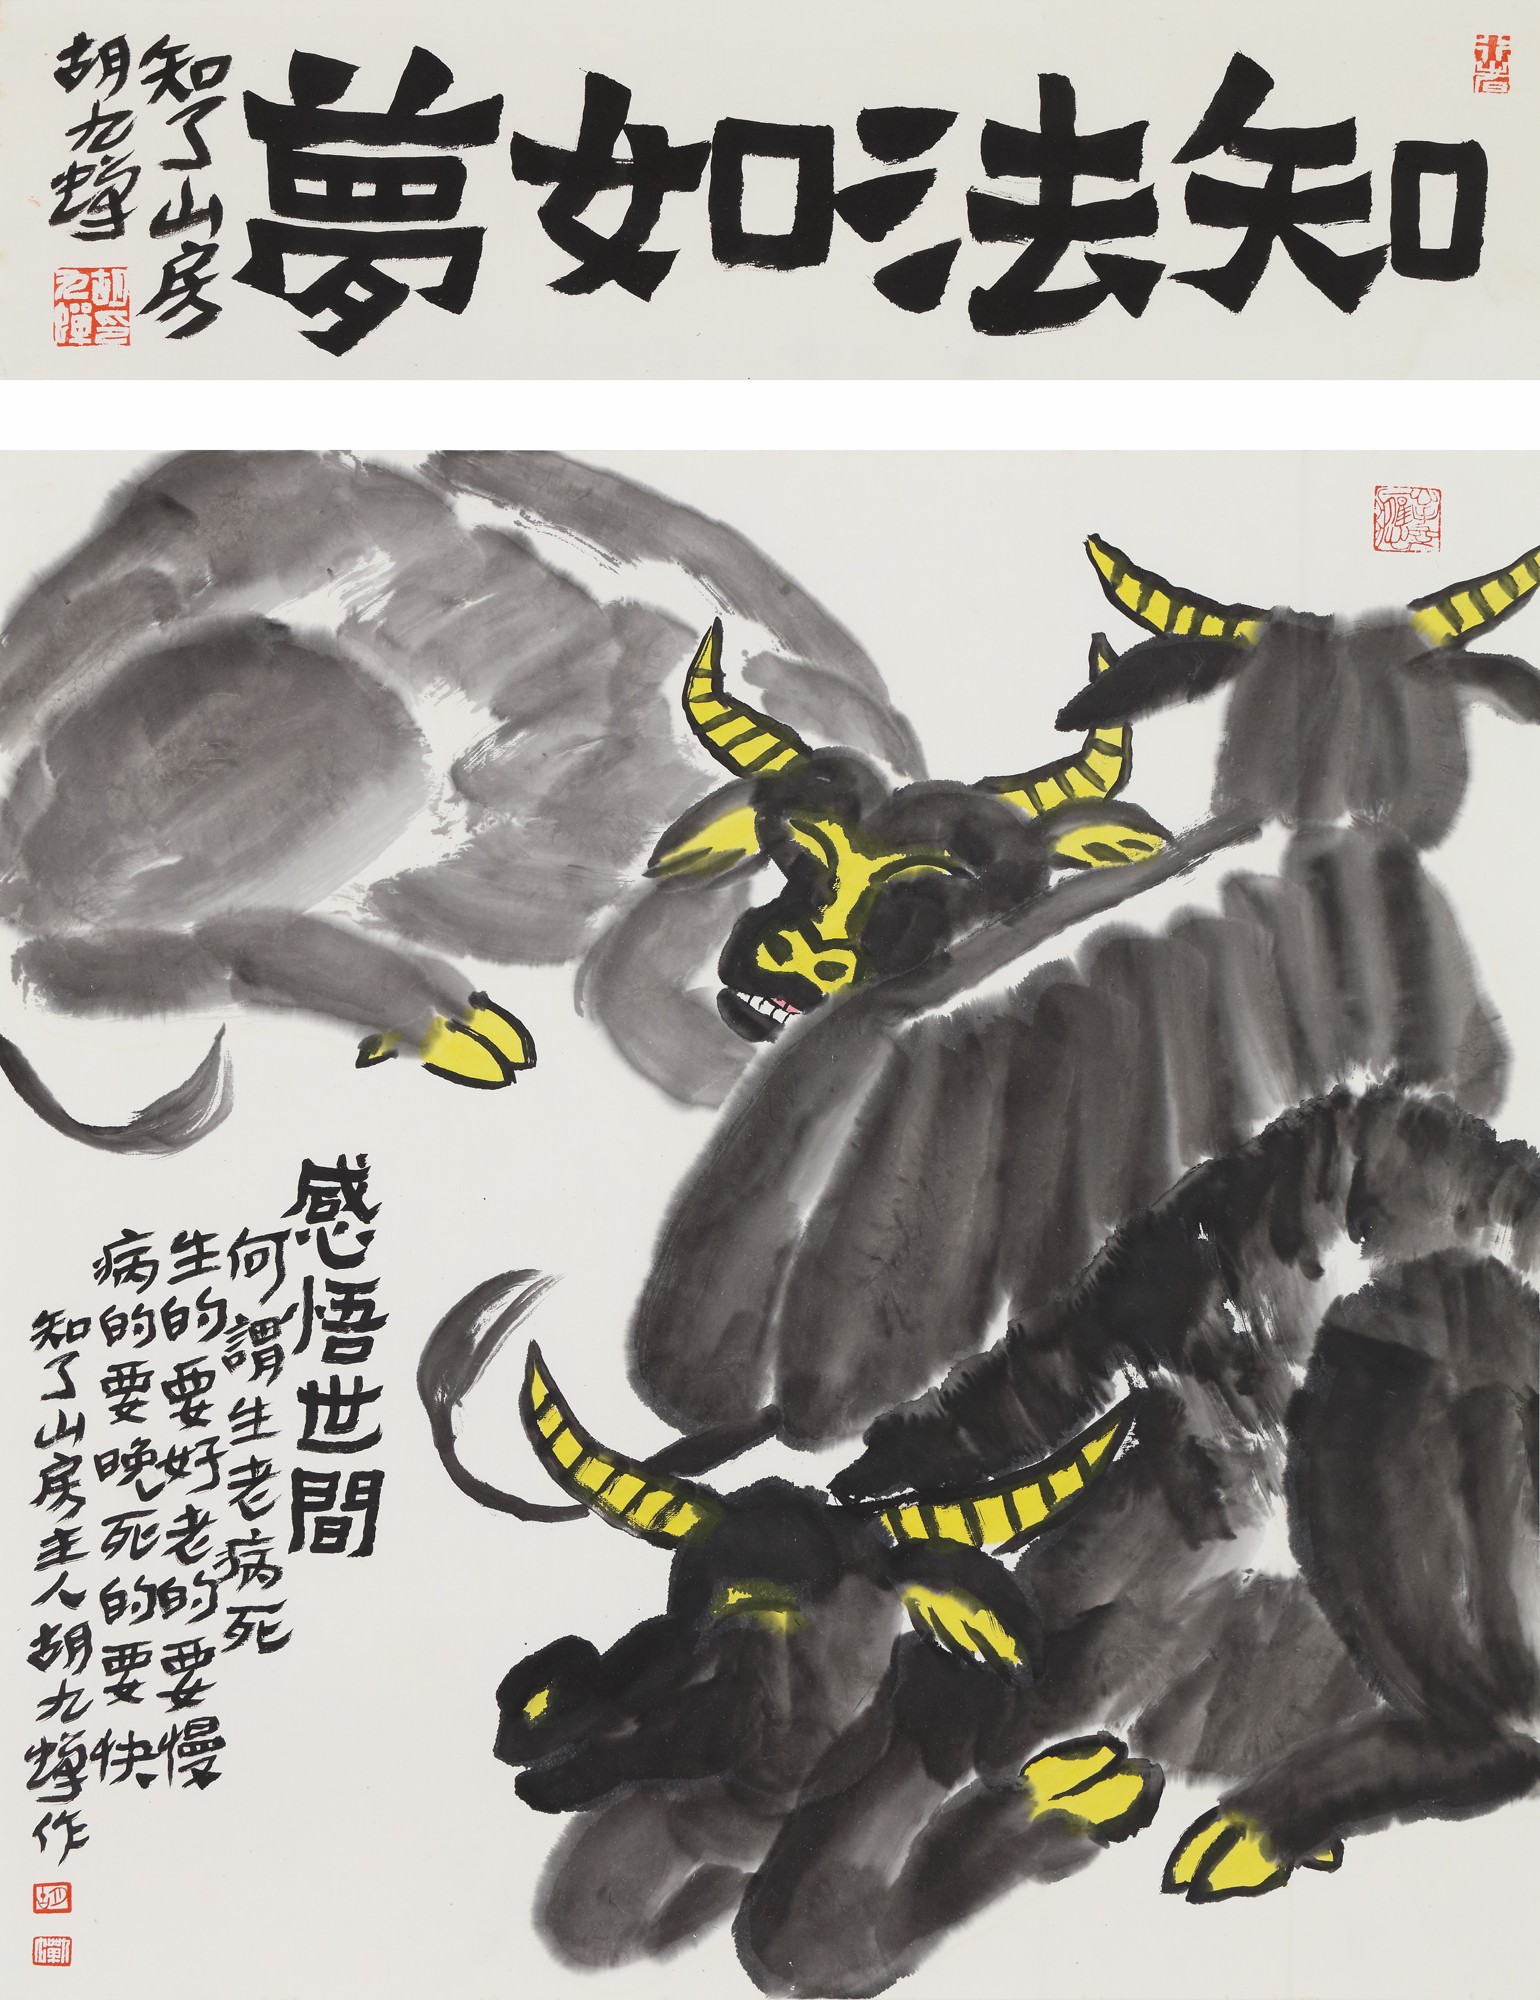 知法如夢
知了山房
胡九蟬
感悟世間
何謂生老病死
生的要好老的要慢
病的要晚死的要快
知了山房主人胡九蟬作